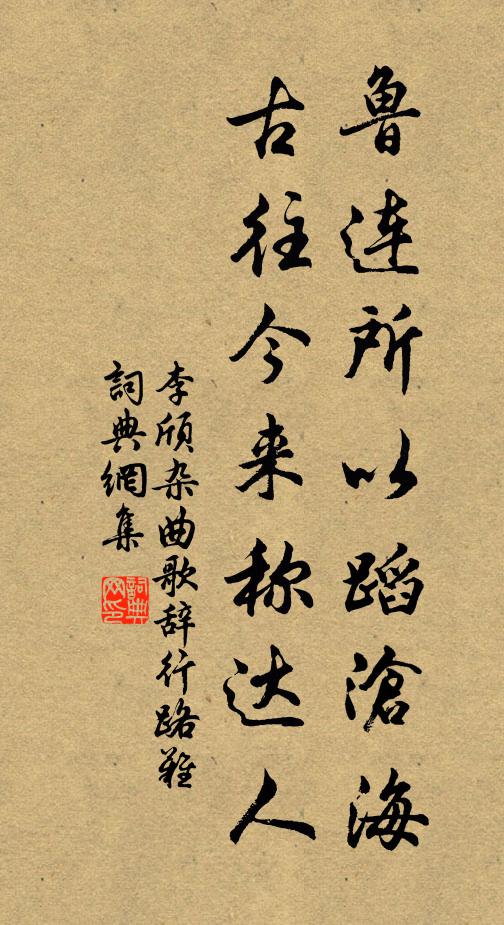 鲁连所以蹈滄海
古往今来称达人
李颀杂曲歌辞行路难
詞典網集
詞典網印